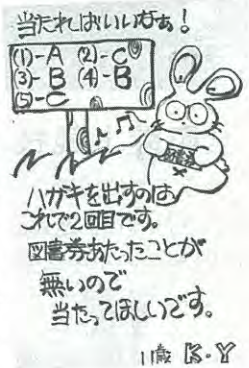 当たればいいなぁ!
(1)-A (2)-C
(3)-B (4)-B
(5)-C
ハガキを出すのは
これで2回目です。
図書券あたったことが
無いので
当たってほしいです。
11歳 K・Y